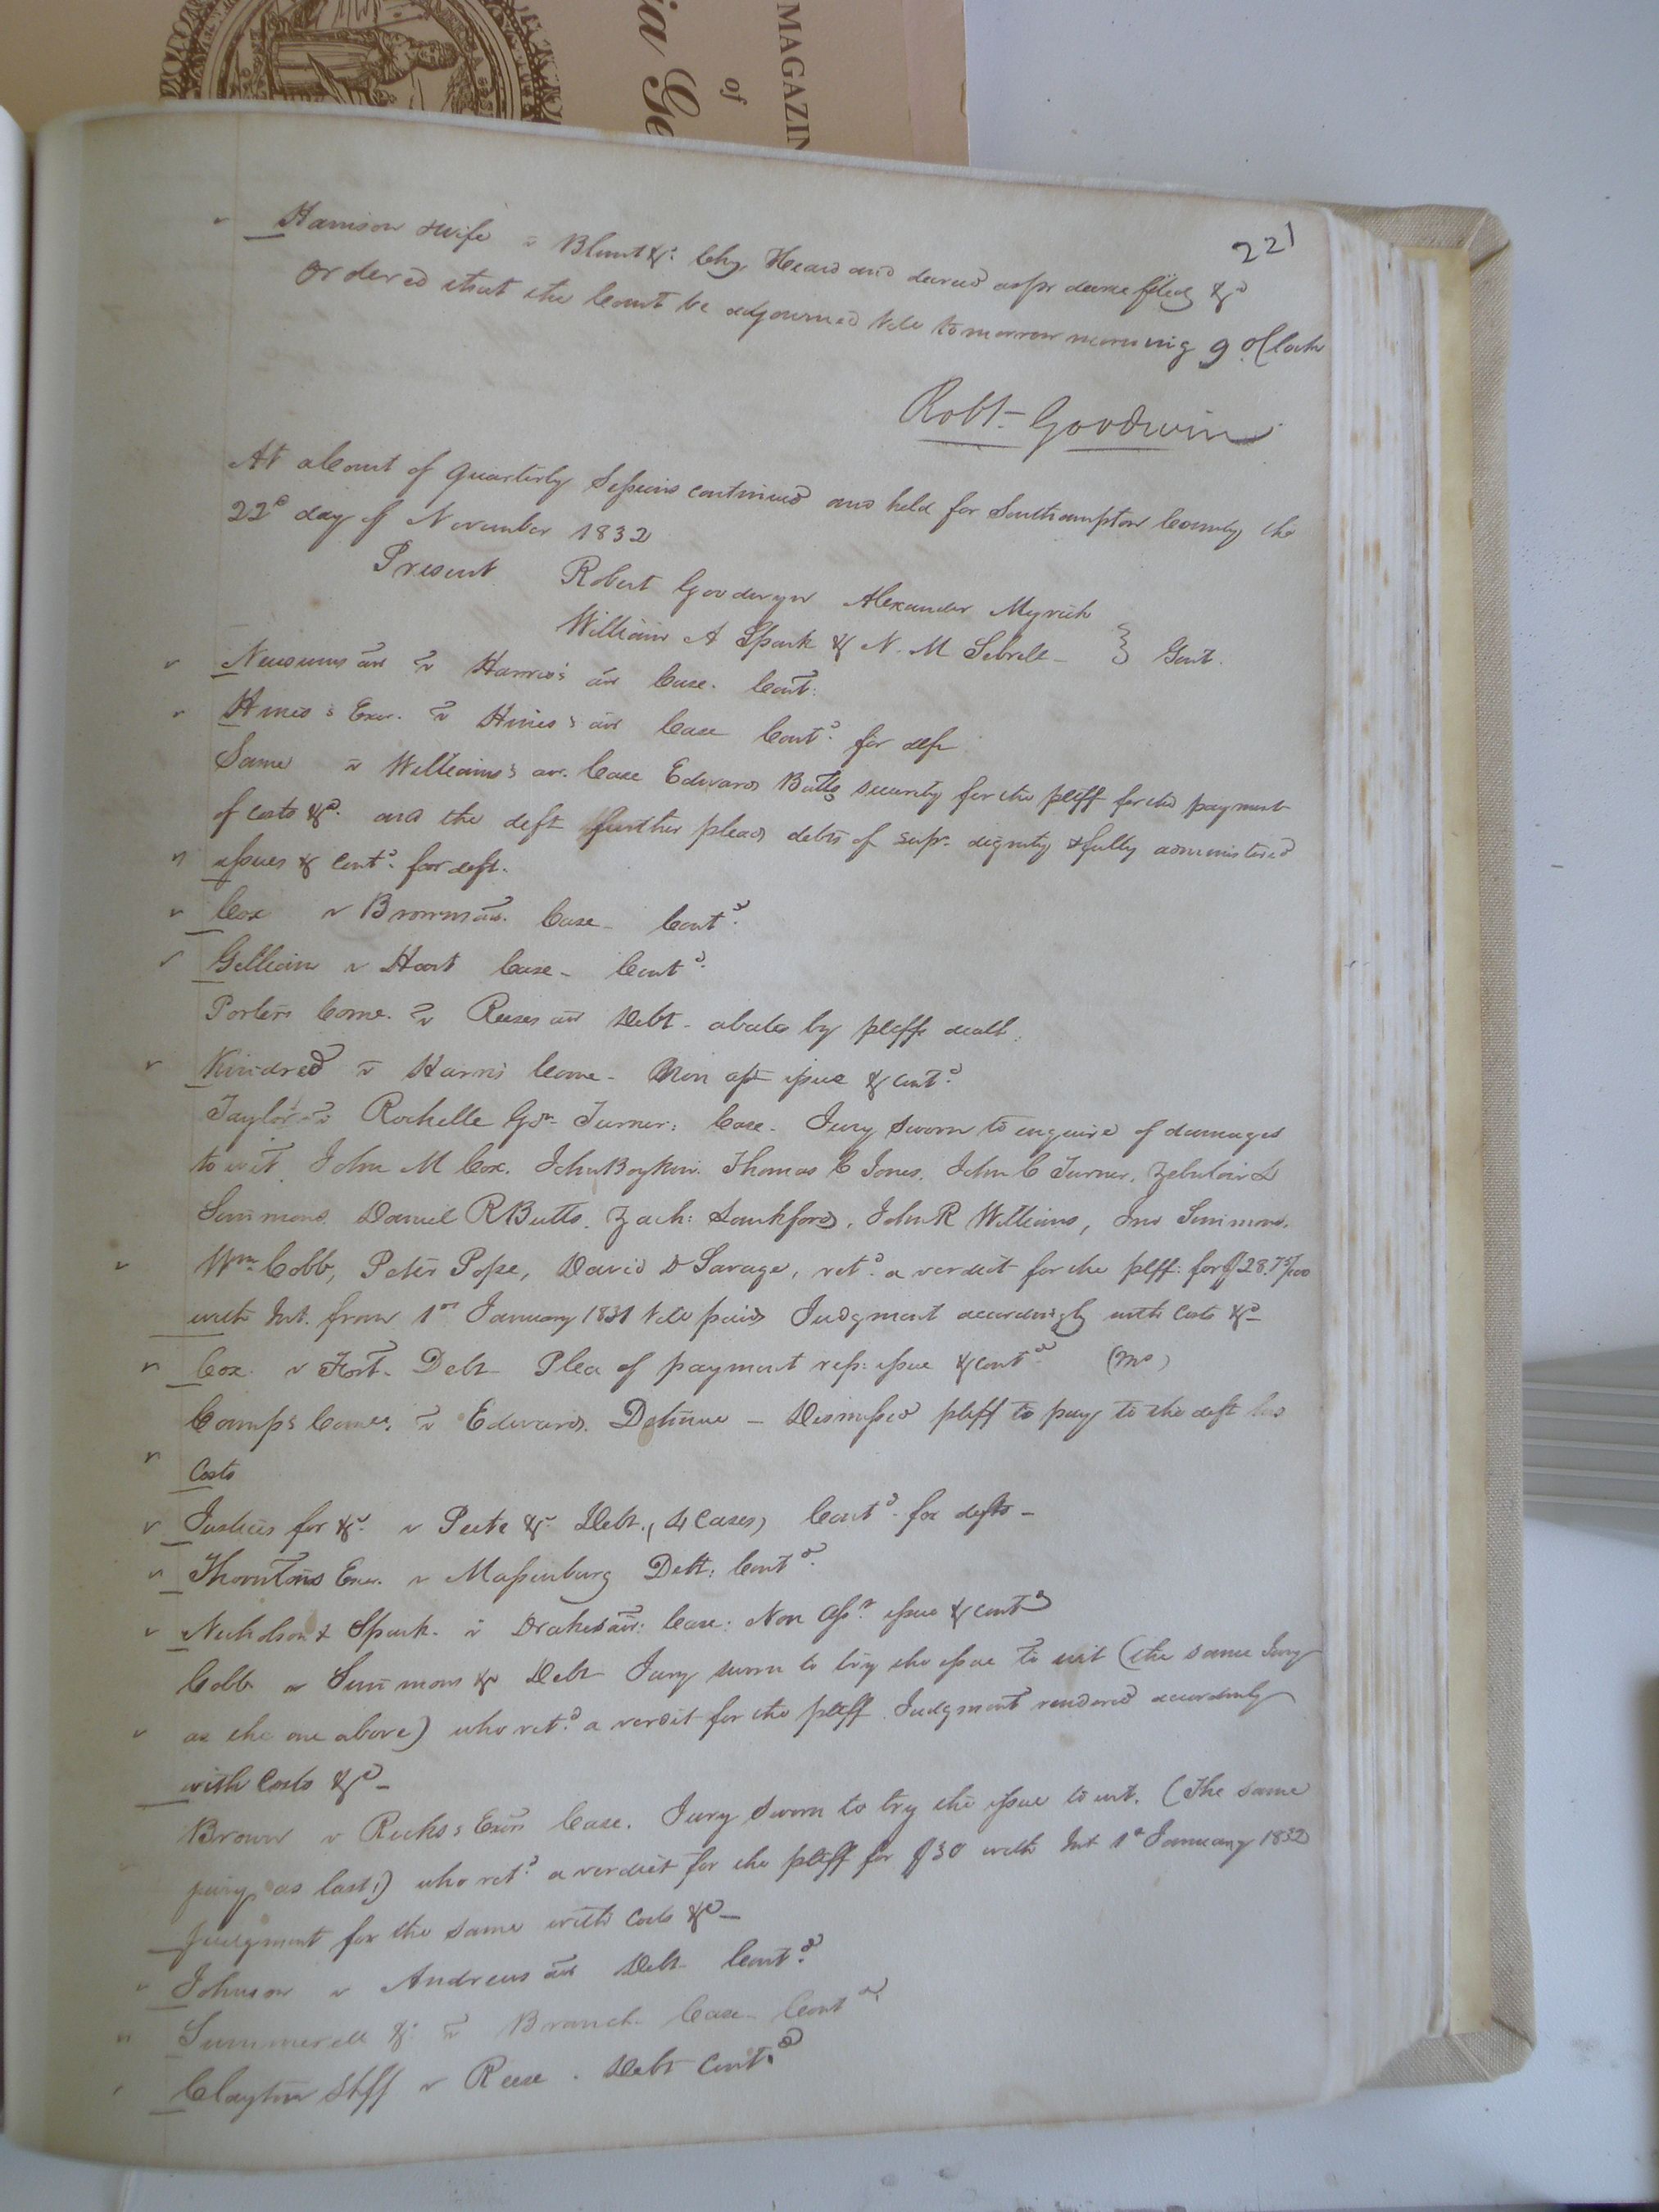 MAGAZIN
of
ia Ge
221
Harrison & wife v Blunt &c: Chy. Heard and decreed as pr decree filed &c
Ordered that the Court be adjourned till tomorrow morning 9 oClock
Robt. Goodwin
At a Court of Quarterly Sessions continued and held for Southampton County the
22d day of November 1832
Present Robert Goodwyn Alexander Myrick
William A Spark & N. M Sebrell } Gent.
Newsums adr v Harris's adr Case. Cont:
Hines's Exor. v Hines's adr Case Contd. for deft
Same v Williams's adr. Case Edward Butts security for the pltff for the payment
of costs &c. and the deft further pleads debts of supr. dignity & fully administered
issues & contd. for deft.
Cox v Browns adr. Case - Contd.
Gilliam v Hart Case - Contd.
Porters Come. v Reeses adr Debt - abates by pltffs death.
Kindred v Harris Come - Non ass issue & contd.
Taylor v Rochelle Gdn Turner: Case - Jury sworn to enquire of damages
to wit, John M Cox, John Boykin, Thomas C Jones, John C Turner, Zebulon L
Simmons, Daniel R Butts, Zach: Lankford, John R Williams, Jno Simmons,
Wm Cobb, Peter Pope, David D Savage, retd. a verdict for the plff: for $28.75/100
with Int. from 1st January 1831 till paid Judgment accordingly with Costs &c
Cox v Fort - Debt - Plea of payment rep: issue & contd.
Camp's Comee. v Edwards. Detinue - Dismissed pltff to pay to the deft his
Costs
Justices for &c. v Peete &c Debt, (4 Cases) Contd. for defts -
Thorntons Exor. v Massenburg Debt: Contd.
Nicholson & Spark. v Drakes adr: Case: Non Asst. issue & contd
Cobb v Simmons &c Debt Jury sworn to try the issue to wit (the same Jury
as the one above) who retd. a verdict for the pltff. Judgment rendered accordingly
with Costs &c -
Brown v Ricks's Exors Case. Jury sworn to try the issue to wit. (The same
jury as last,) who retd. a verdict for the pltff for $30 with Int 1st January 1832
Judgment for the same with costs &c -
Johnson v Andrews adr Debt - Contd.
Summerell &c: v Branch - Case - Contd.
Clayton Stff v Reese. Debt Contd.